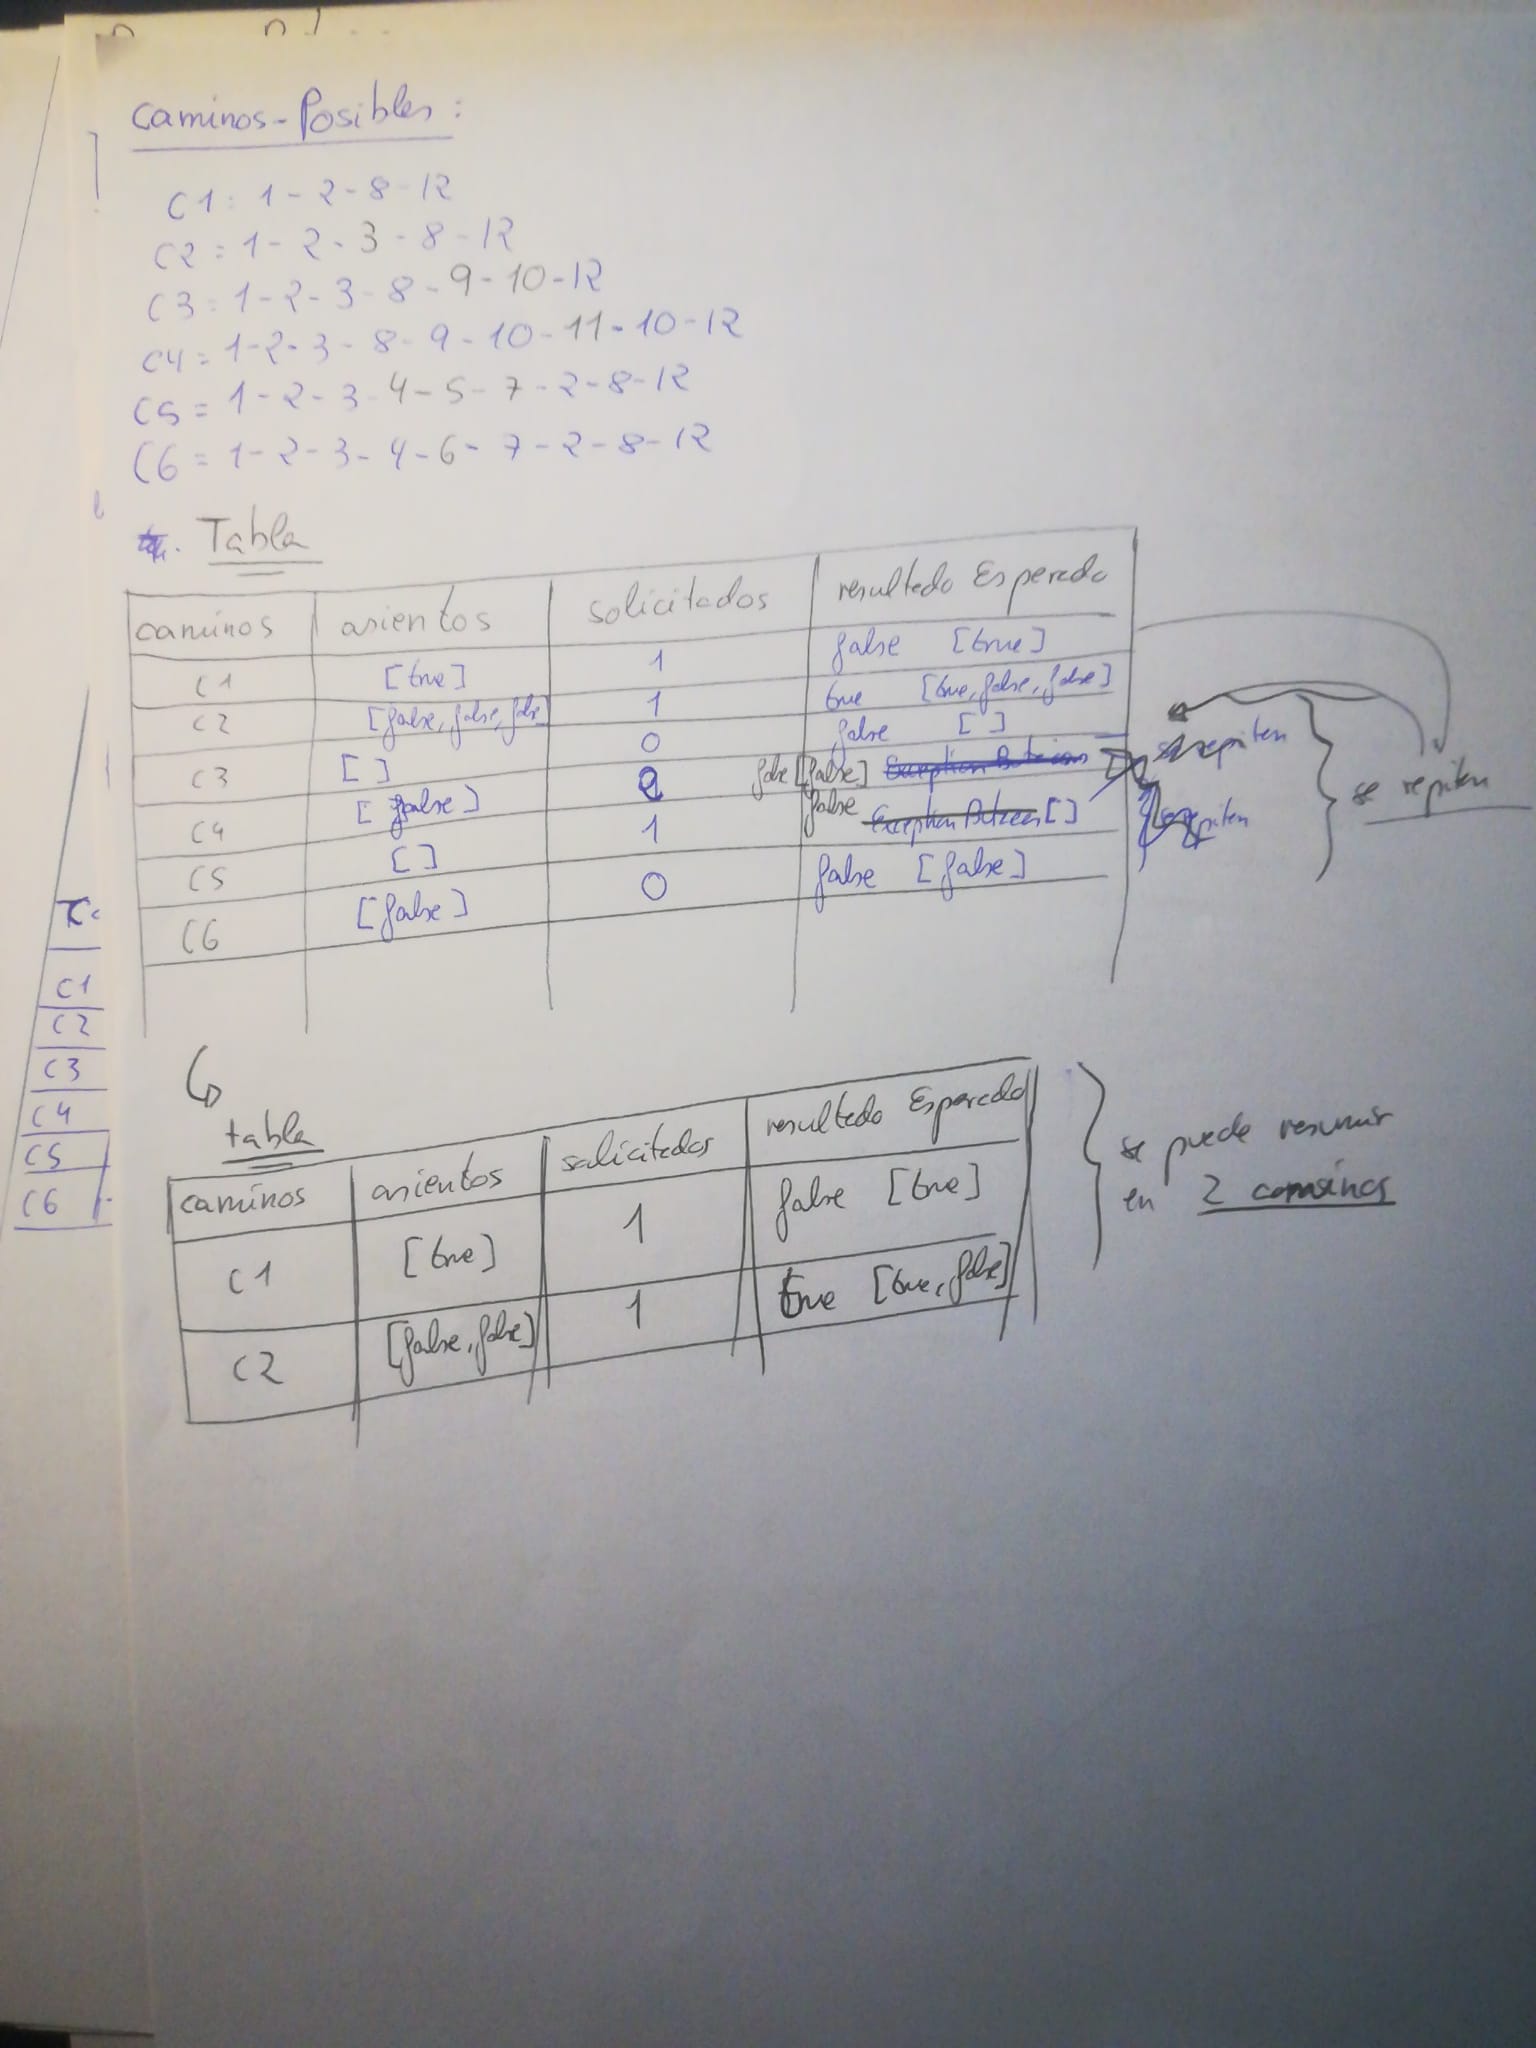 Caminos-Posibles:
C1: 1-2-8-12
C2 = 1-2-3-8-12
C3 = 1-2-3-8-9-10-12
C4 = 1-2-3-8-9-10-11-10-12
C5 = 1-2-3-4-5-7-2-8-12
C6 = 1-2-3-4-6-7-2-8-12
Tabla
caminos asientos solicitados resultado Esperado
C1 [true] 1 false [true]
C2 [false, false, false] 1 true [true, false, false]
C3 [ ] 0 false [ ]
C4 [false] 2 false [false]
C5 [ ] 1 false [ ]
C6 [false] 0 false [false]
se repiten
se repiten
se repiten
C1
C2
C3
C4
C5
C6
tabla
caminos asientos solicitados resultado Esperado
C1 [true] 1 false [true]
C2 [false, false] 1 true [true, false]
se puede resumir
en 2 caminos